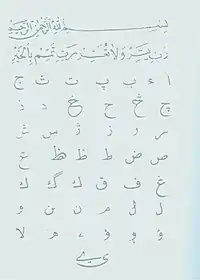 بسم الله الرحمن الرحيم
رب يسر ولا تعسر رب تمم بالخير
ا ء ب پ ت ث ج
چ ح خ د ذ
ر ز ژ س ش
ص ض ط ظ ع
غ ف ق ك گ ك
ل م ن و
ۋ ؤ ء ه لا
ى ے